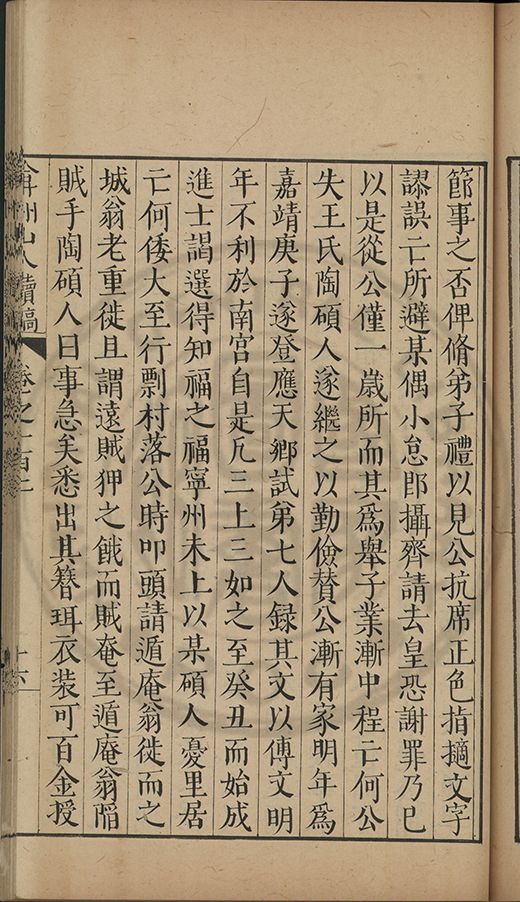 節事之否俾脩弟子禮以見公抗席正色指擿文字
謬誤亡所避某偶小怠即攝齊請去皇恐謝罪乃已
以是從公僅一歲所而其爲舉子業漸中程亡何公
失王氏陶碩人遂繼之以勤儉贊公漸有家明年爲
嘉靖庚子遂登應天鄉試第七人録其文以傳文明
年不利於南宮自是凡三上三如之至癸丑而始成
進士謁選得知福之福寧州未上以某碩人憂里居
亡何倭大至行剽村落公時叩頭請遁庵翁徙而之
城翁老重徙且謂遠賊狎之俄而賊奄至遁庵翁陷
賊手陶碩人曰事急矣悉出其簪珥衣装可百金授
弇州山人續稿 卷之一百二
十六